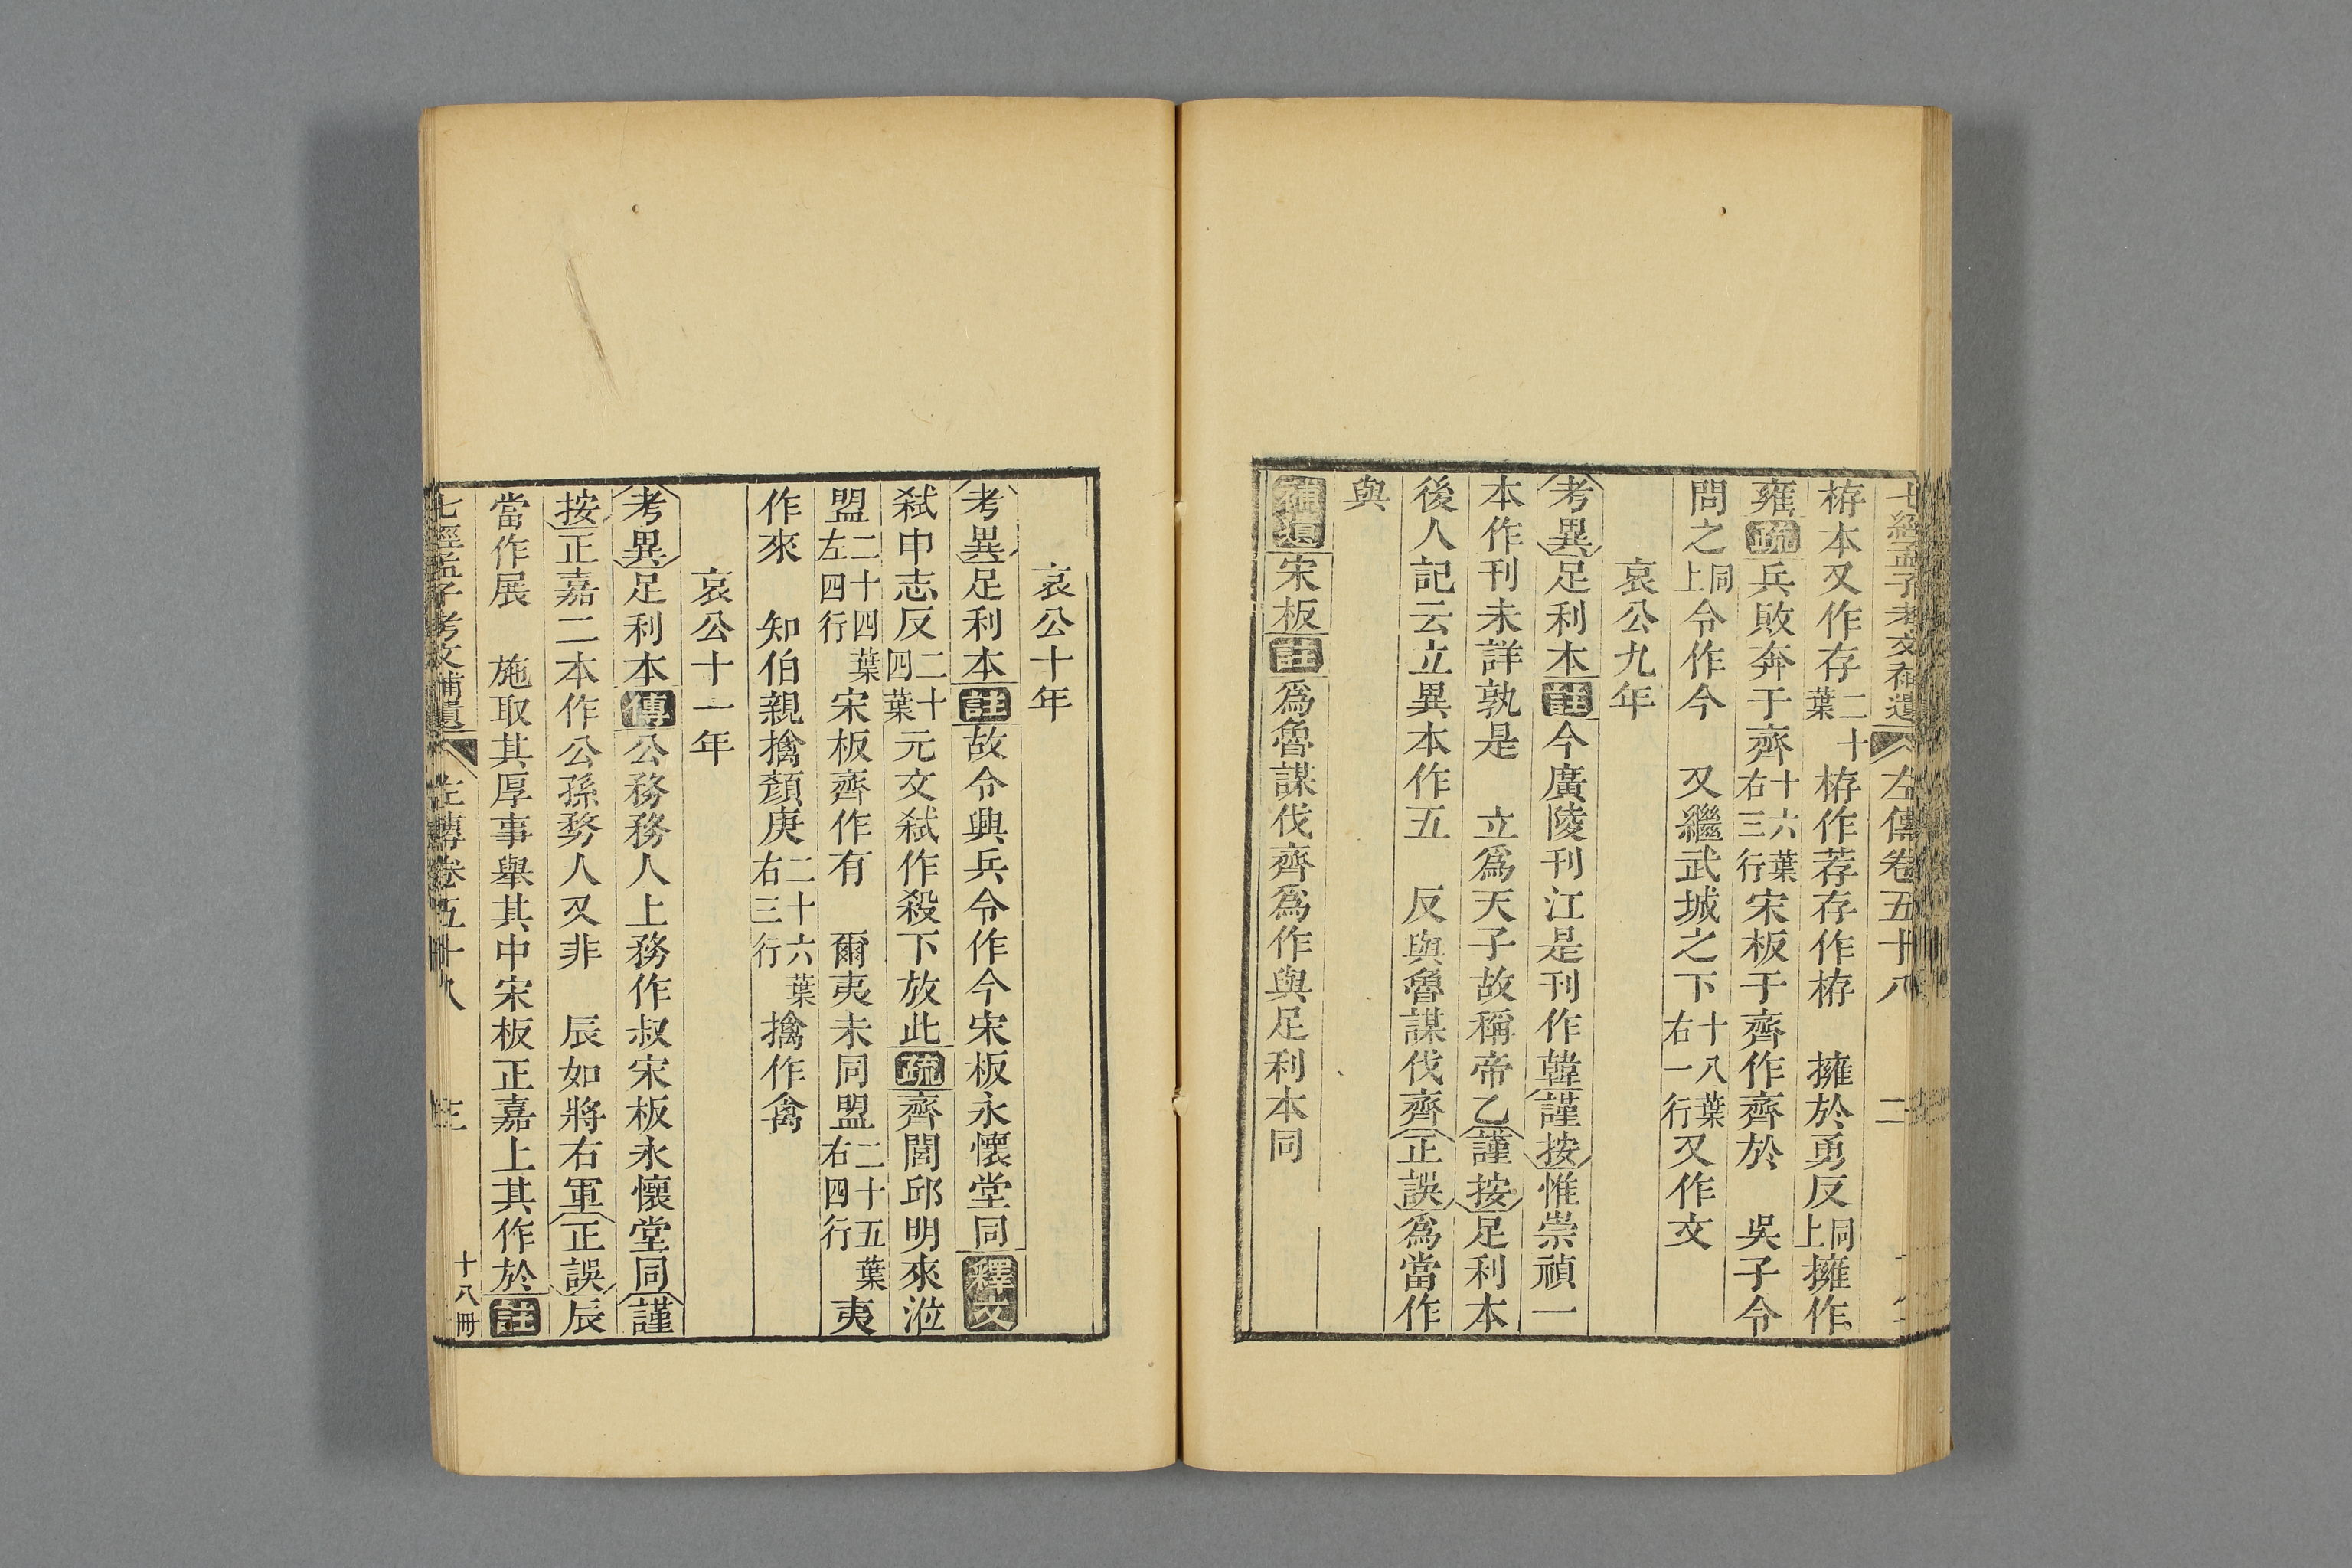 七經孟子考文補遺 左傳卷五十八 二
栫本又作存二十葉栫作荐存作栫　擁於勇反同上擁作
雍疏兵敗奔于齊十六葉右三行宋板于齊作齊於　吳子令
問之同上令作今　又繼武城之下十八葉右一行又作文
哀公九年
考異足利本註今廣陵刊江是刊作韓謹按惟崇禎一
本作刊未詳孰是　立爲天子故稱帝乙謹按足利本
後人記云立異本作五　反與魯謀伐齊正誤爲當作
與
補遺宋板註爲魯謀伐齊爲作與足利本同
哀公十年
考異足利本註故令興兵令作今宋板永懷堂同釋文
弒申志反二十四葉元文弒作殺下放此疏齊閭邱明來涖
盟二十四葉左四行宋板齊作有　爾夷未同盟二十五葉右四行夷
作來　知伯親擒顏庚二十六葉右三行擒作禽
哀公十一年
考異足利本傳公務務人上務作叔宋板永懷堂同謹
按正嘉二本作公孫務人又非　辰如將右軍正誤辰
當作展　施取其厚事舉其中宋板正嘉上其作於註
七經孟子考文補遺 左傳卷五十八 三 十八冊